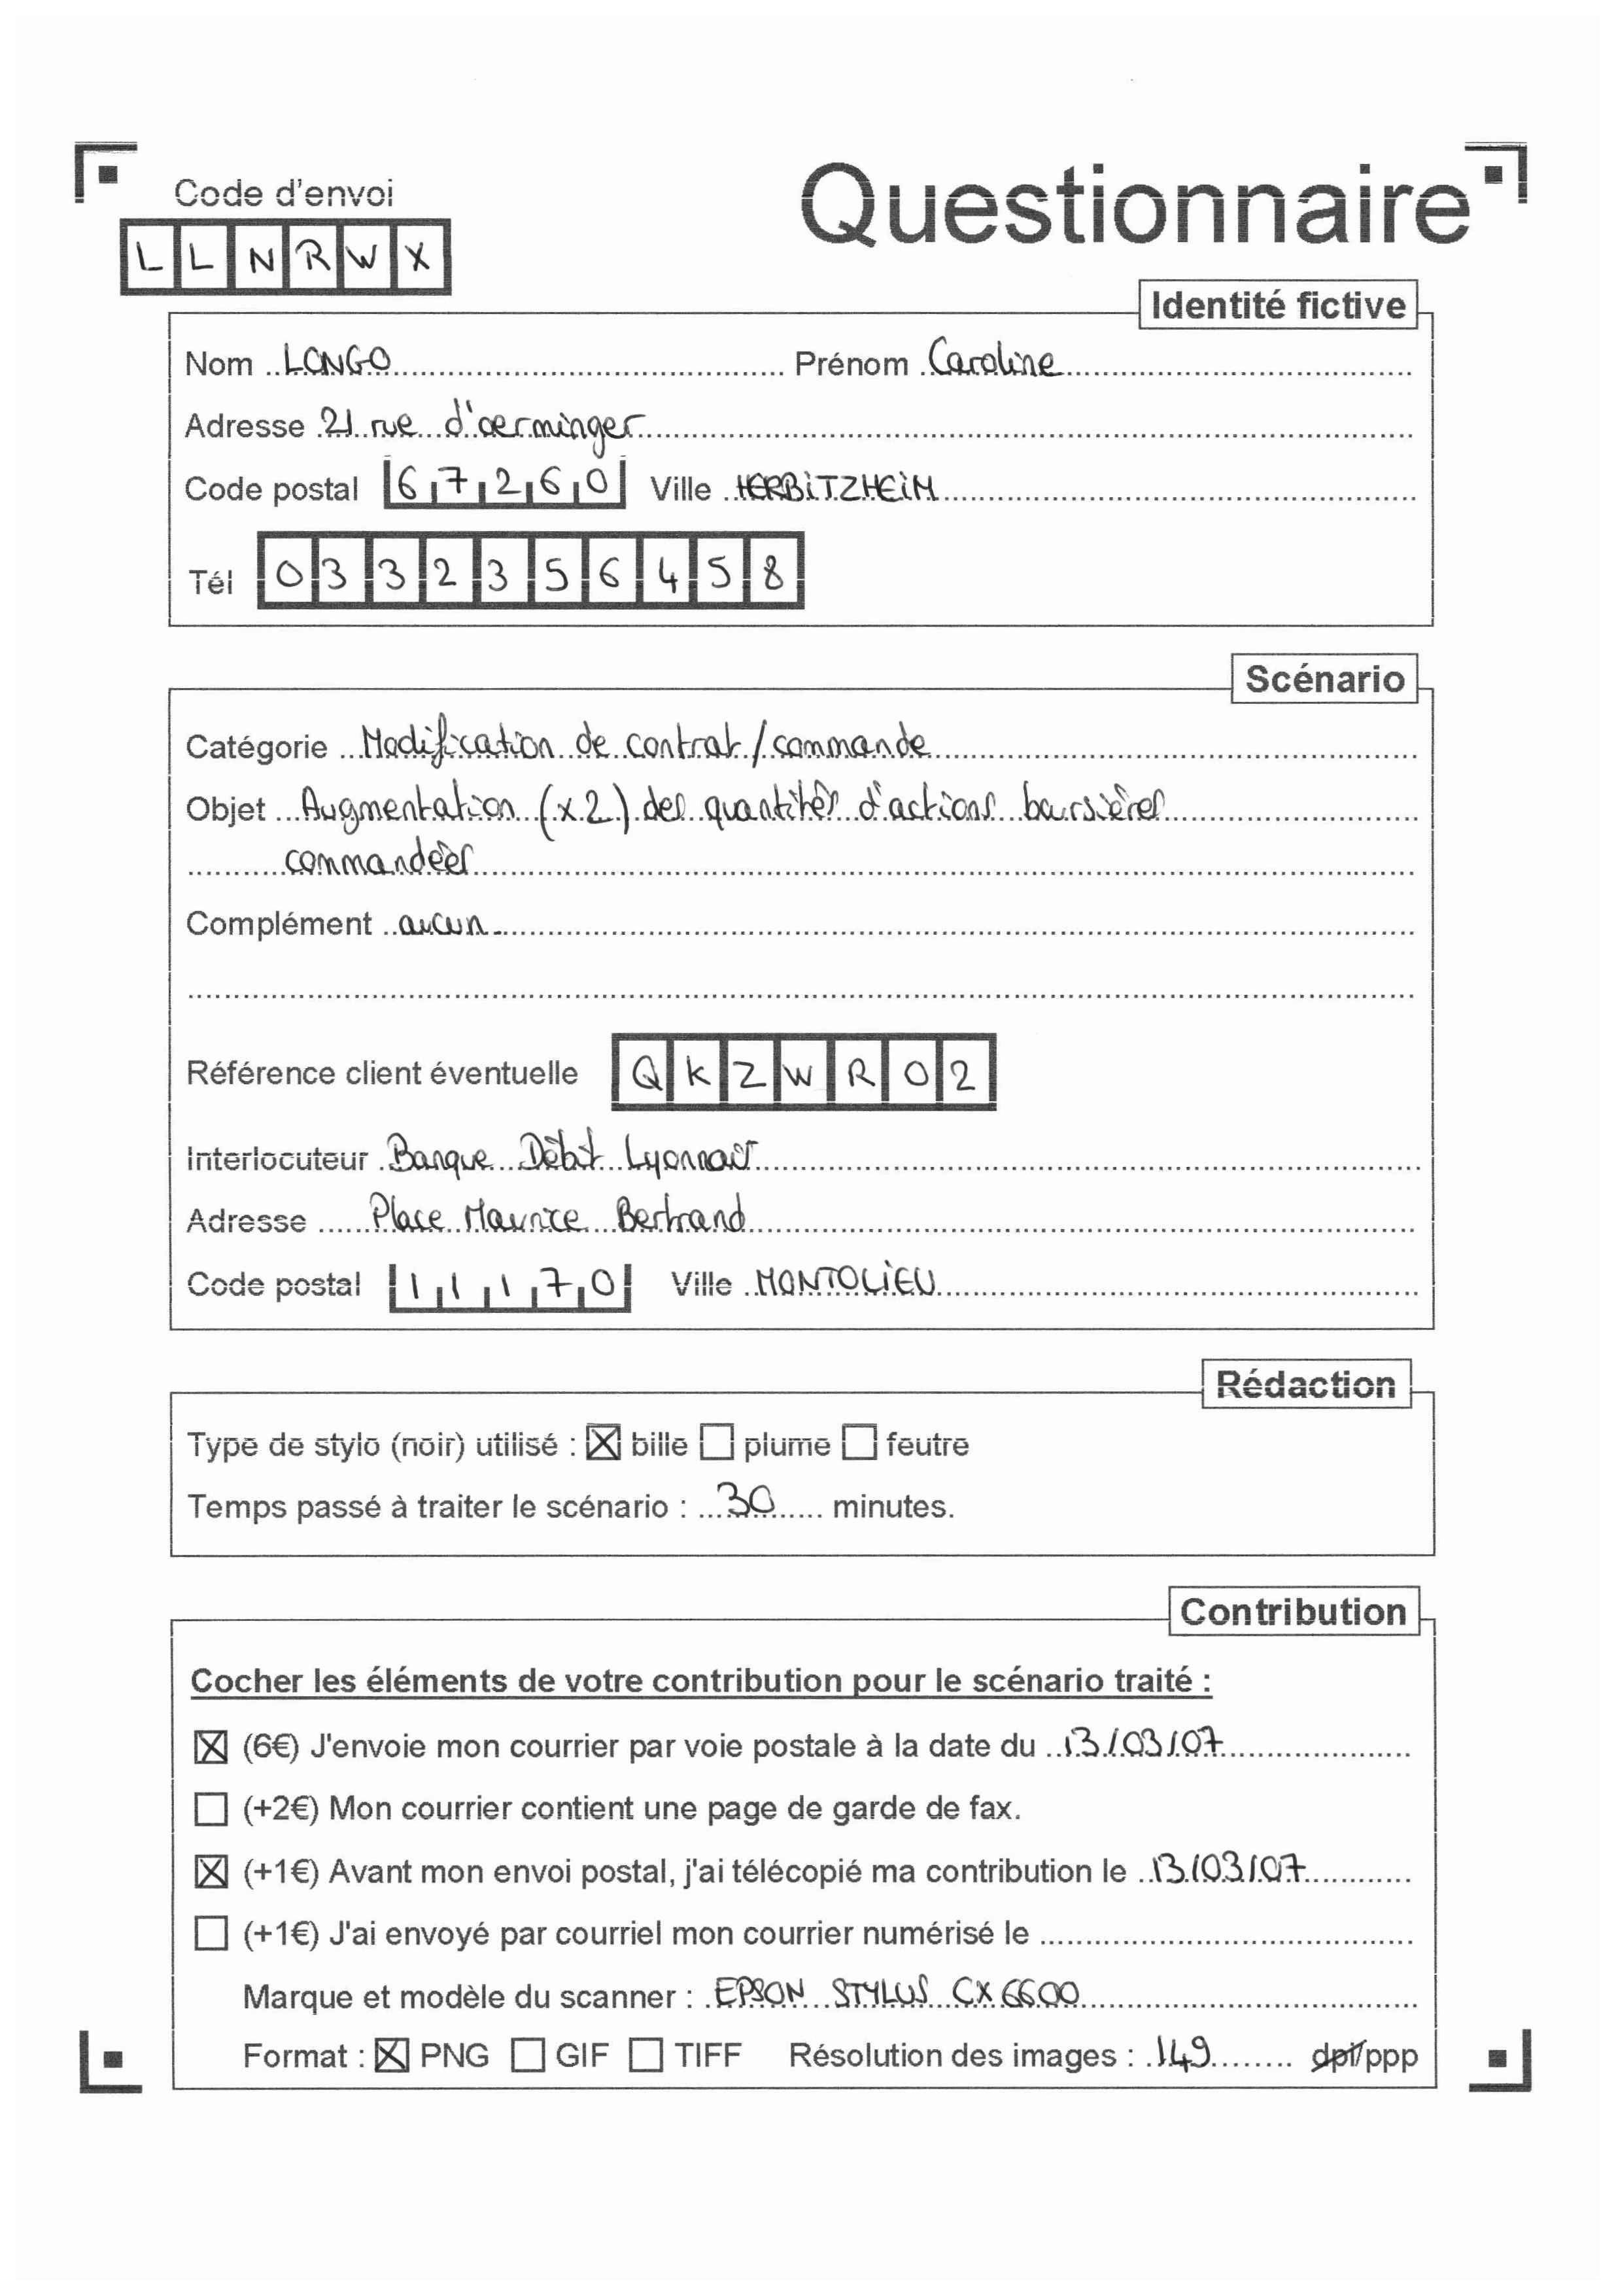 Code d'envoi
Questionnaire
L L N R W X
Identité fictive
Nom LONGO Prénom Caroline
Adresse 21 rue d'oerminger
Code postal 67260 Ville HERBITZHEIM
Tél 0332356458
Scénario
Catégorie Modification de contrat / commande
Objet Augmentation (x2) des quantités d'actions boursières
commandées
Complément aucun
Référence client éventuelle Q K Z W R 0 2
Interlocuteur Banque Débit Lyonnais
Adresse Place Maurice Bertrand
Code postal 11170 Ville MONTOLIEU
Rédaction
Type de stylo (noir) utilisé : ☒ bille ☐ plume ☐ feutre
Temps passé à traiter le scénario : 30 minutes.
Contribution
Cocher les éléments de votre contribution pour le scénario traité :
☒ (6€) J'envoie mon courrier par voie postale à la date du 13/03/07
☐ (+2€) Mon courrier contient une page de garde de fax.
☒ (+1€) Avant mon envoi postal, j'ai télécopié ma contribution le 13/03/07
☐ (+1€) J'ai envoyé par courriel mon courrier numérisé le
Marque et modèle du scanner : EPSON STYLUS CX6600
Format : ☒ PNG ☐ GIF ☐ TIFF Résolution des images : 149 dpi/ppp